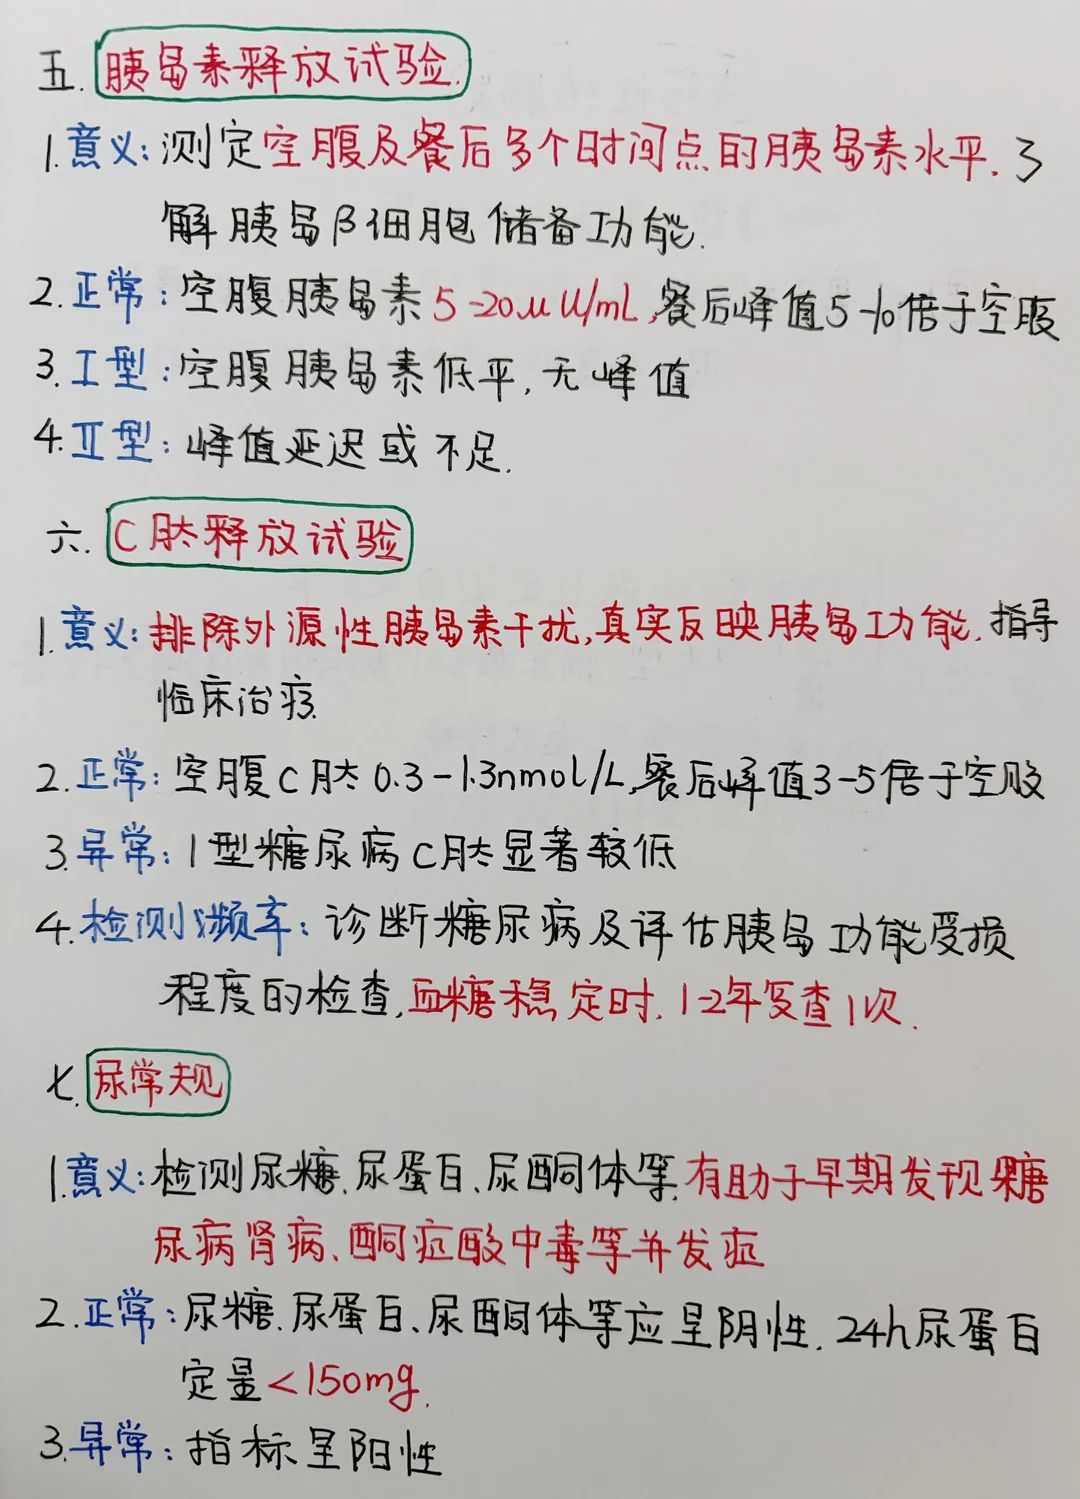 五.胰岛素释放试验.
1.意义:测定空腹及餐后多个时间点的胰岛素水平.了
解胰岛β细胞储备功能.
2.正常:空腹胰岛素5-20μU/mL,餐后峰值5-10倍于空腹
3.I型:空腹胰岛素低平,无峰值
4.II型:峰值延迟或不足.
六.C肽释放试验
1.意义:排除外源性胰岛素干扰,真实反映胰岛功能.指导
临床治疗.
2.正常:空腹C肽0.3-1.3nmol/L,餐后峰值3-5倍于空腹
3.异常:1型糖尿病C肽显著较低
4.检测频率:诊断糖尿病及评估胰岛功能受损
程度的检查,血糖稳定时.1-2年复查1次.
七.尿常规
1.意义:检测尿糖、尿蛋白、尿酮体等.有助于早期发现糖
尿病肾病、酮症酸中毒等并发症
2.正常:尿糖.尿蛋白、尿酮体等应呈阴性.24h尿蛋白
定量<150mg.
3.异常:指标呈阳性